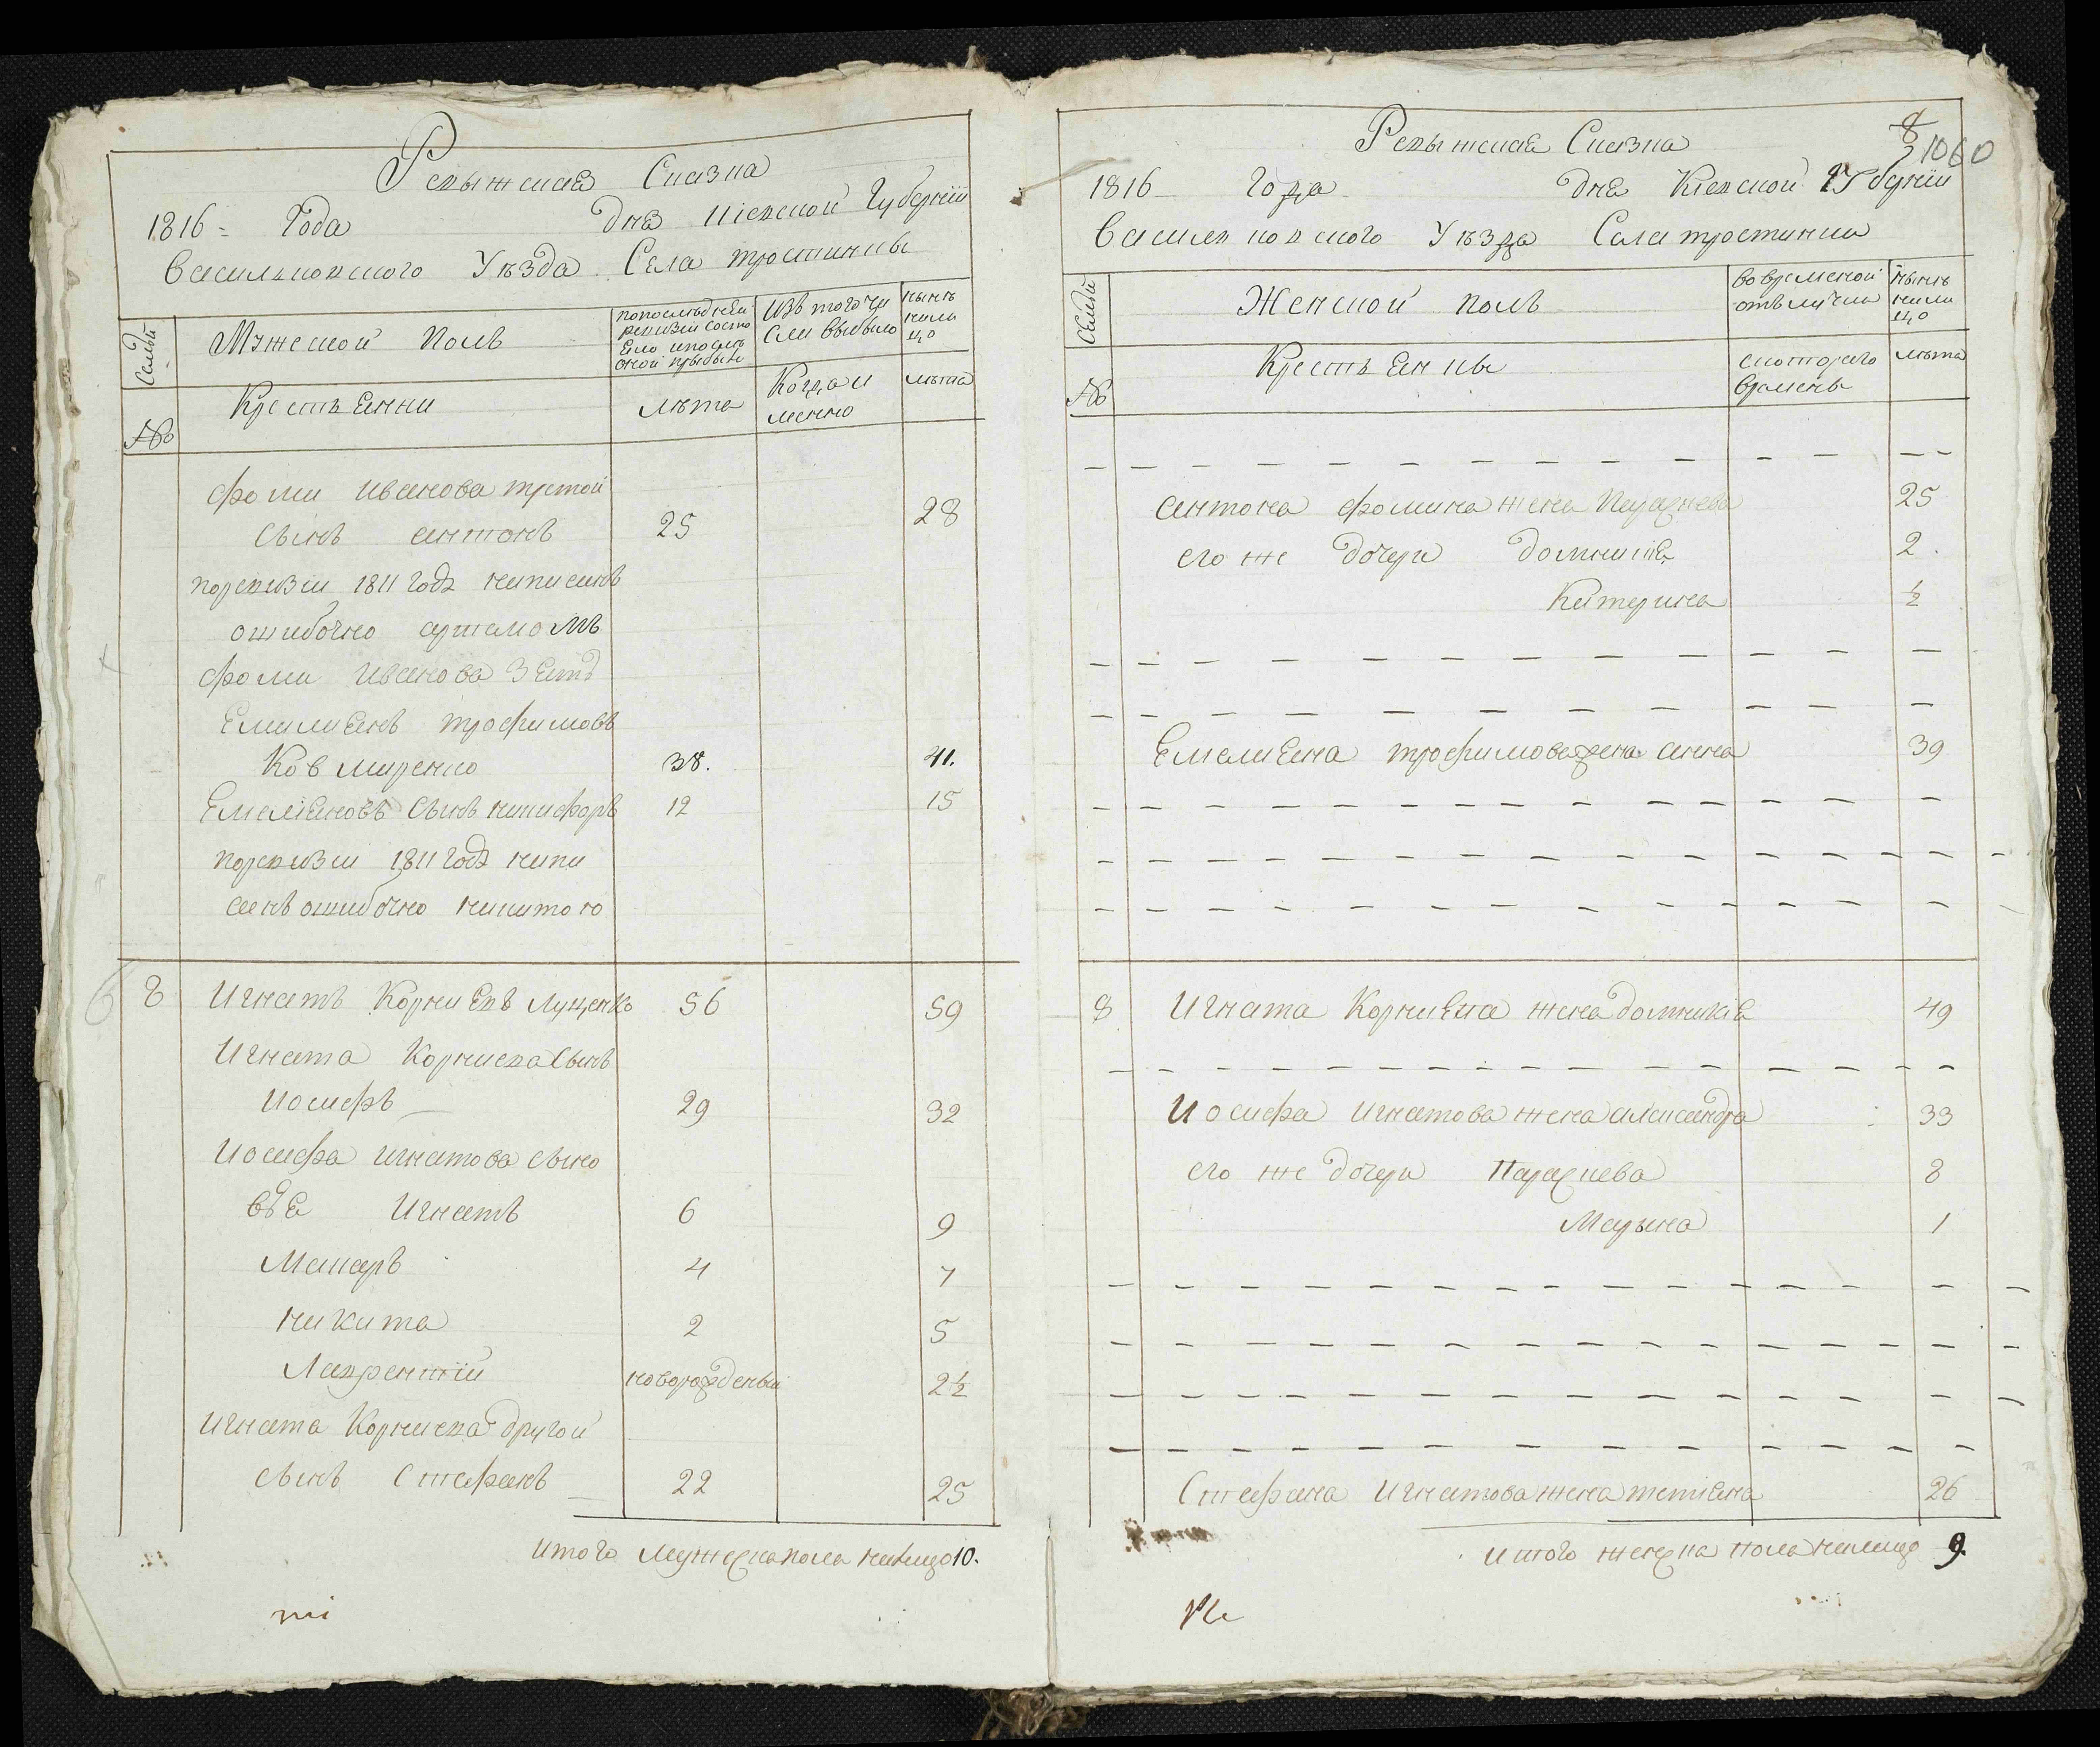 Ревижская Сказка
1816 = Года дня Кіевской Губерніи
Васильковского Уѣзда Села тростинки
Семьи
Мужеской Полъ
По последней ревизіи состояло и после оной прибыло
Изъ того числа выбыло
нынѣ на лицо
№
Крестьянни
Лѣта
Когда именно
лѣта
фомы иванова третой
сынъ антонъ 25 28
поревизіи 1811 года написанъ
ошибочно артемомъ
фомы иванова зять
Емилиянъ трофимовъ
Ковшаренко 38. 41.
Емелияновъ сынъ никифоръ 12 15
поревизіи 1811 года напи
санъ ошибочно никитою
8 Игнатъ Корниевъ Луценко 56 59
Игната Корниева сынъ
Иосифъ 29 32
Иосифа игнатова сыно
въя Игнатъ 6 9
Макаръ 4 7
никита 2 5
Лаврентій новорожденый 2 1/2
игната Корниева другой
сынъ Стефанъ 22 25
итого мужеска пола налицо 10.
8
1060
Ревижская Сказка
1816 года дня Кіевской Губерніи
Васильковского Уѣзда Села тростинки
Семьи
Женской полъ
во временой отълучки
нынѣ на лицо
№
Крестьянки
скоторого времены
лѣта
антона фомина жена Параскева 25
его же дочери домникия 2.
Катерина 1/2
Емелияна трофимова жена анна 39
8 Игната Корниева жена домникія 49
Иосифа игнатова жена александра 33
его же дочери Параскева 8
Марына 1
Стефана Игнатова жена татіяна 26
итого женска пола налицо 9.